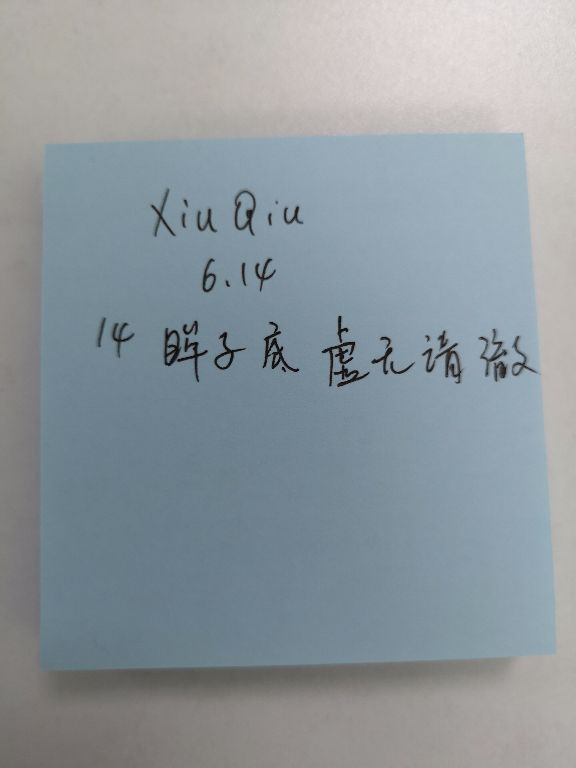 Xiu Qiu
6.14
14 眸子底 虚无请澈